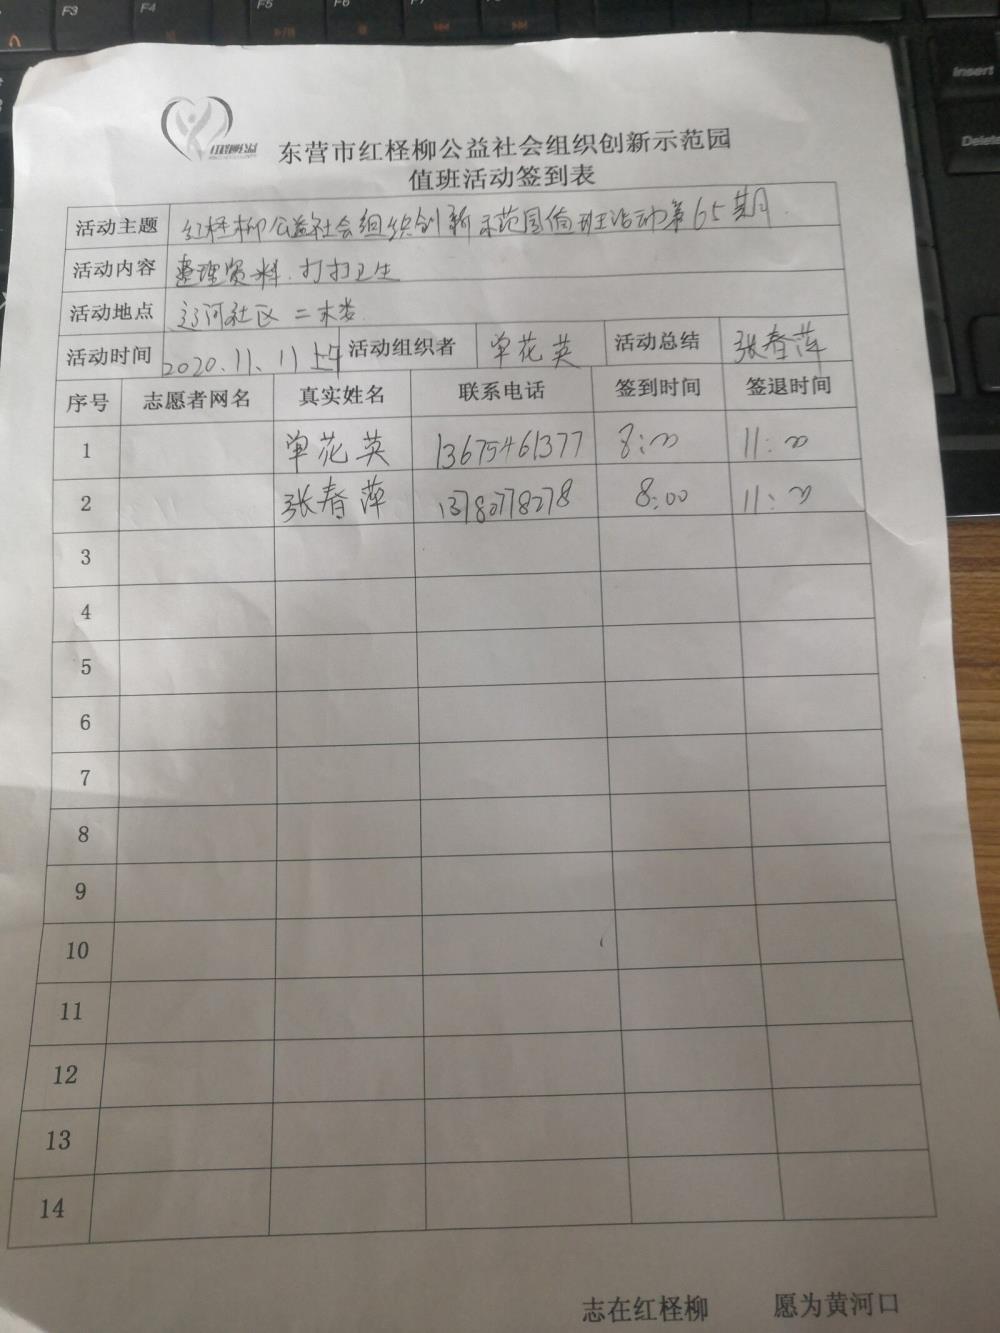 F3 F4 F5 F6 F7 F8
Insert
Delete
红柽柳公益
东营市红柽柳公益社会组织创新示范园
值班活动签到表
活动主题 红柽柳公益社会组织创新示范园值班活动第65期
活动内容 整理资料.打扫卫生
活动地点 辽河社区二末娄
活动时间 2020.11.11上午 活动组织者 单花英 活动总结 张春萍
序号 志愿者网名 真实姓名 联系电话 签到时间 签退时间
1 单花英 13675461377 8:00 11:00
2 张春萍 13780778278 8:00 11:00
3
4
5
6
7
8
9
10
11
12
13
14
志在红柽柳 愿为黄河口